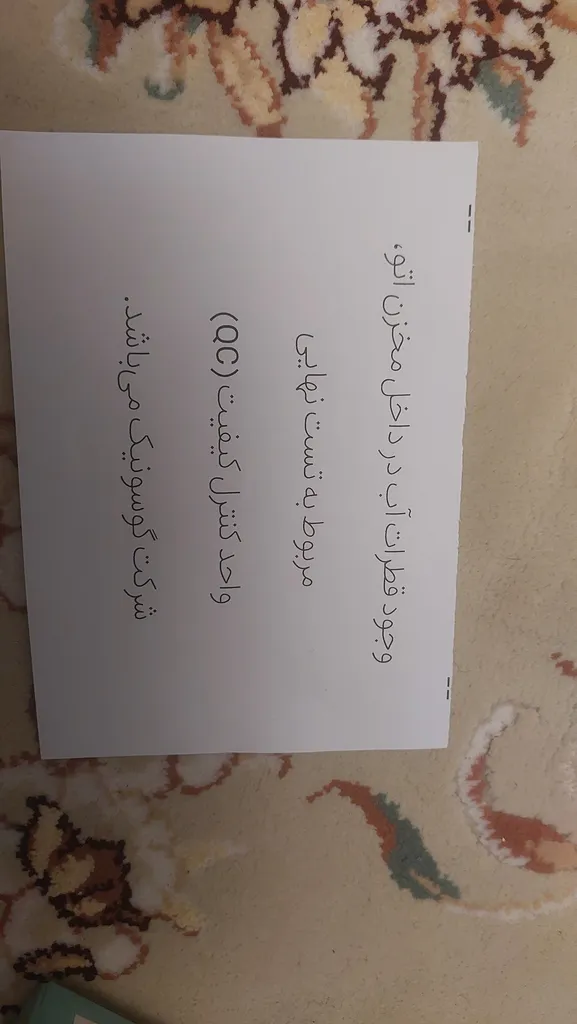 وجود قطرات آب در داخل مخزن اتو،
مربوط به تست نهایی
واحد کنترل کیفیت (QC)
شرکت گوسونیک می‌باشد.